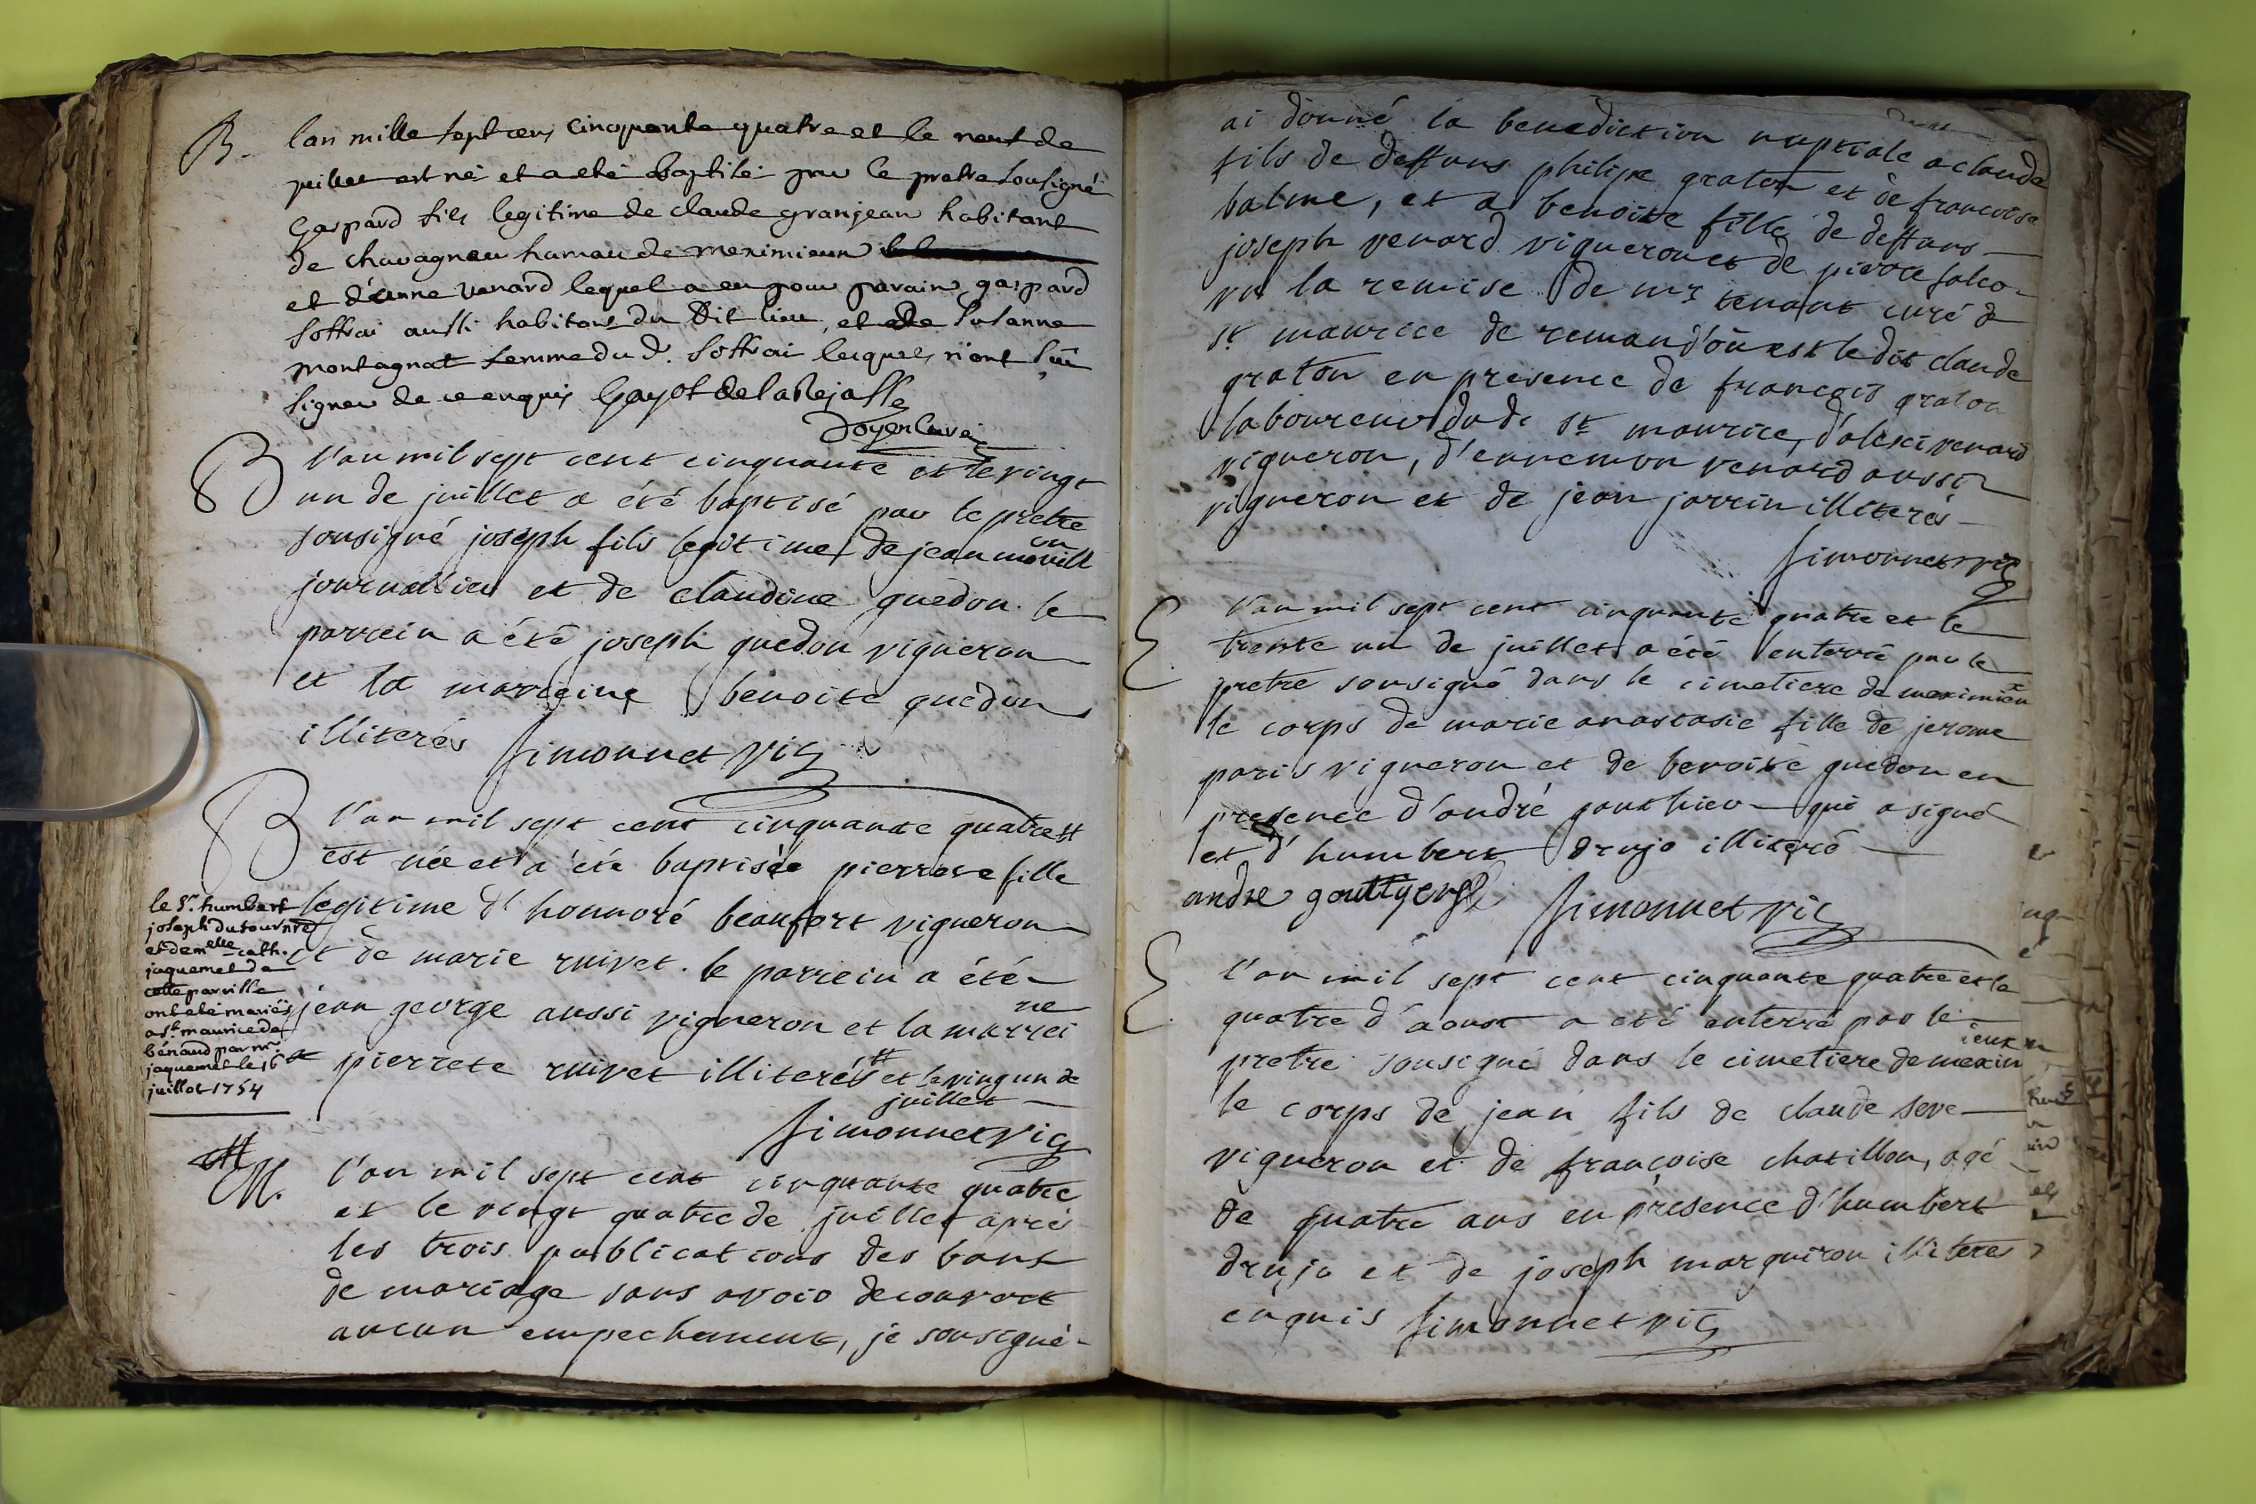 B. lan mille sept cens cinquante quatre et le neuf de
juillet est né et a eté baptisé par le pretre sousigné
Gaspard fils legitime de claude granjean habitant
de chavagneu hamau de meximieux
et d'anne venard lequel a eu pour parain gaspard
soffrai aussi habitant du dit lieu, et de susanne
montagnat femme du d. soffrai lesquels n'ont sçu
signer de ce enquis Gayot de la Rejasse
Doyen Curé
B l'an mil sept cent cinquante et le vingt
un de juillet a été baptisé par le pretre
sousigné joseph fils legitime de jean movill
on
journallier et de claudine guedon. le
parrein a été joseph guedon vigneron
et la marreine benoite guedon
illiterés Simonnet vic
B l'an mil sept cent cinquante quatre #
est née et a été baptisée pierrete fille
legitime d'honnoré beaufort vigneron
et de marie ruivet. le parrein a été
jean george aussi vigneron et la marrei
ne
pierrete ruivet illiterés # et le ving un de
juillet
Simonnet vic
le Sr. humbert
joseph dutour
et demelle cath.
jaquemet de
cette parville
ont eté mariés
a st. maurice de
bénaud par mr
jaquemet le 16
juillet 1754
M. l'an mil sept cent cinquante quatre
et le vingt quatre de juillet aprés
les trois publications des bans
de mariage sans avoir decouvert
aucun empechement, je sousigné
ai donné la benediction nuptiale a claude
fils de deffuns philipe graton et de francoise
balme, et a benoite fille de deffuns
joseph venard vigneron et de pierrete falco
vu la remise de mr tenant curé de
st maurice de remand d'où est le dit claude
graton en presence de francois graton
laboureur du d. st maurice, d'alexi venard
vigneron, d'ennemon venard aussi
vigneron et de jean jarrin illiterés
Simonnet vic
E. l'an mil sept cent cinquante quatre et le
trente un de juillet a été enterré par le
pretre sousigné dans le cimetiere de meximieu
x
le corps de marie anastasie fille de jerome
paris vigneron et de benoite guedon en
presence d'andré gouthier qui a signé
et d'humbert drujo illiteré
andre gouttyers Simonnet vic
E. l'an mil sept cent cinquante quatre et le
quatre d'aoust a eté enterré par le
pretre sousigné dans le cimetiere de mexim
ieux
le corps de jean fils de claude seve
vigneron et de françoise chatillon, agé
de quatre ans en presence d'humbert
drujo et de joseph marguiron illiteres
enquis Simonnet vic